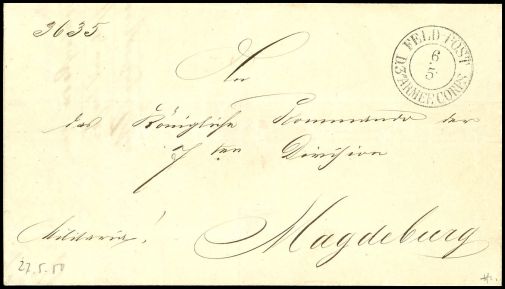 3635.
FELD-POST
6/5
D. 3T ARMEE CORPS
An
das Königliche Commando der
7 ten Division
Militaria!
Magdeburg
27.5.50